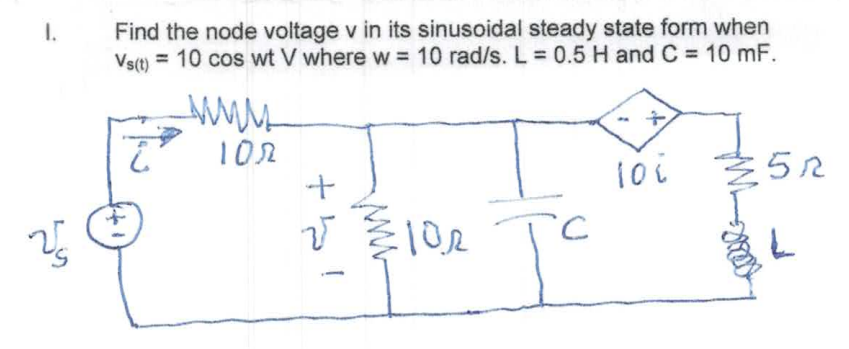 I. Find the node voltage v in its sinusoidal steady state form when
Vs(t) = 10 cos wt V where w = 10 rad/s. L = 0.5 H and C = 10 mF.
10Ω
i
- +
10i
5Ω
+
v
-
10Ω
C
L
+
-
vs